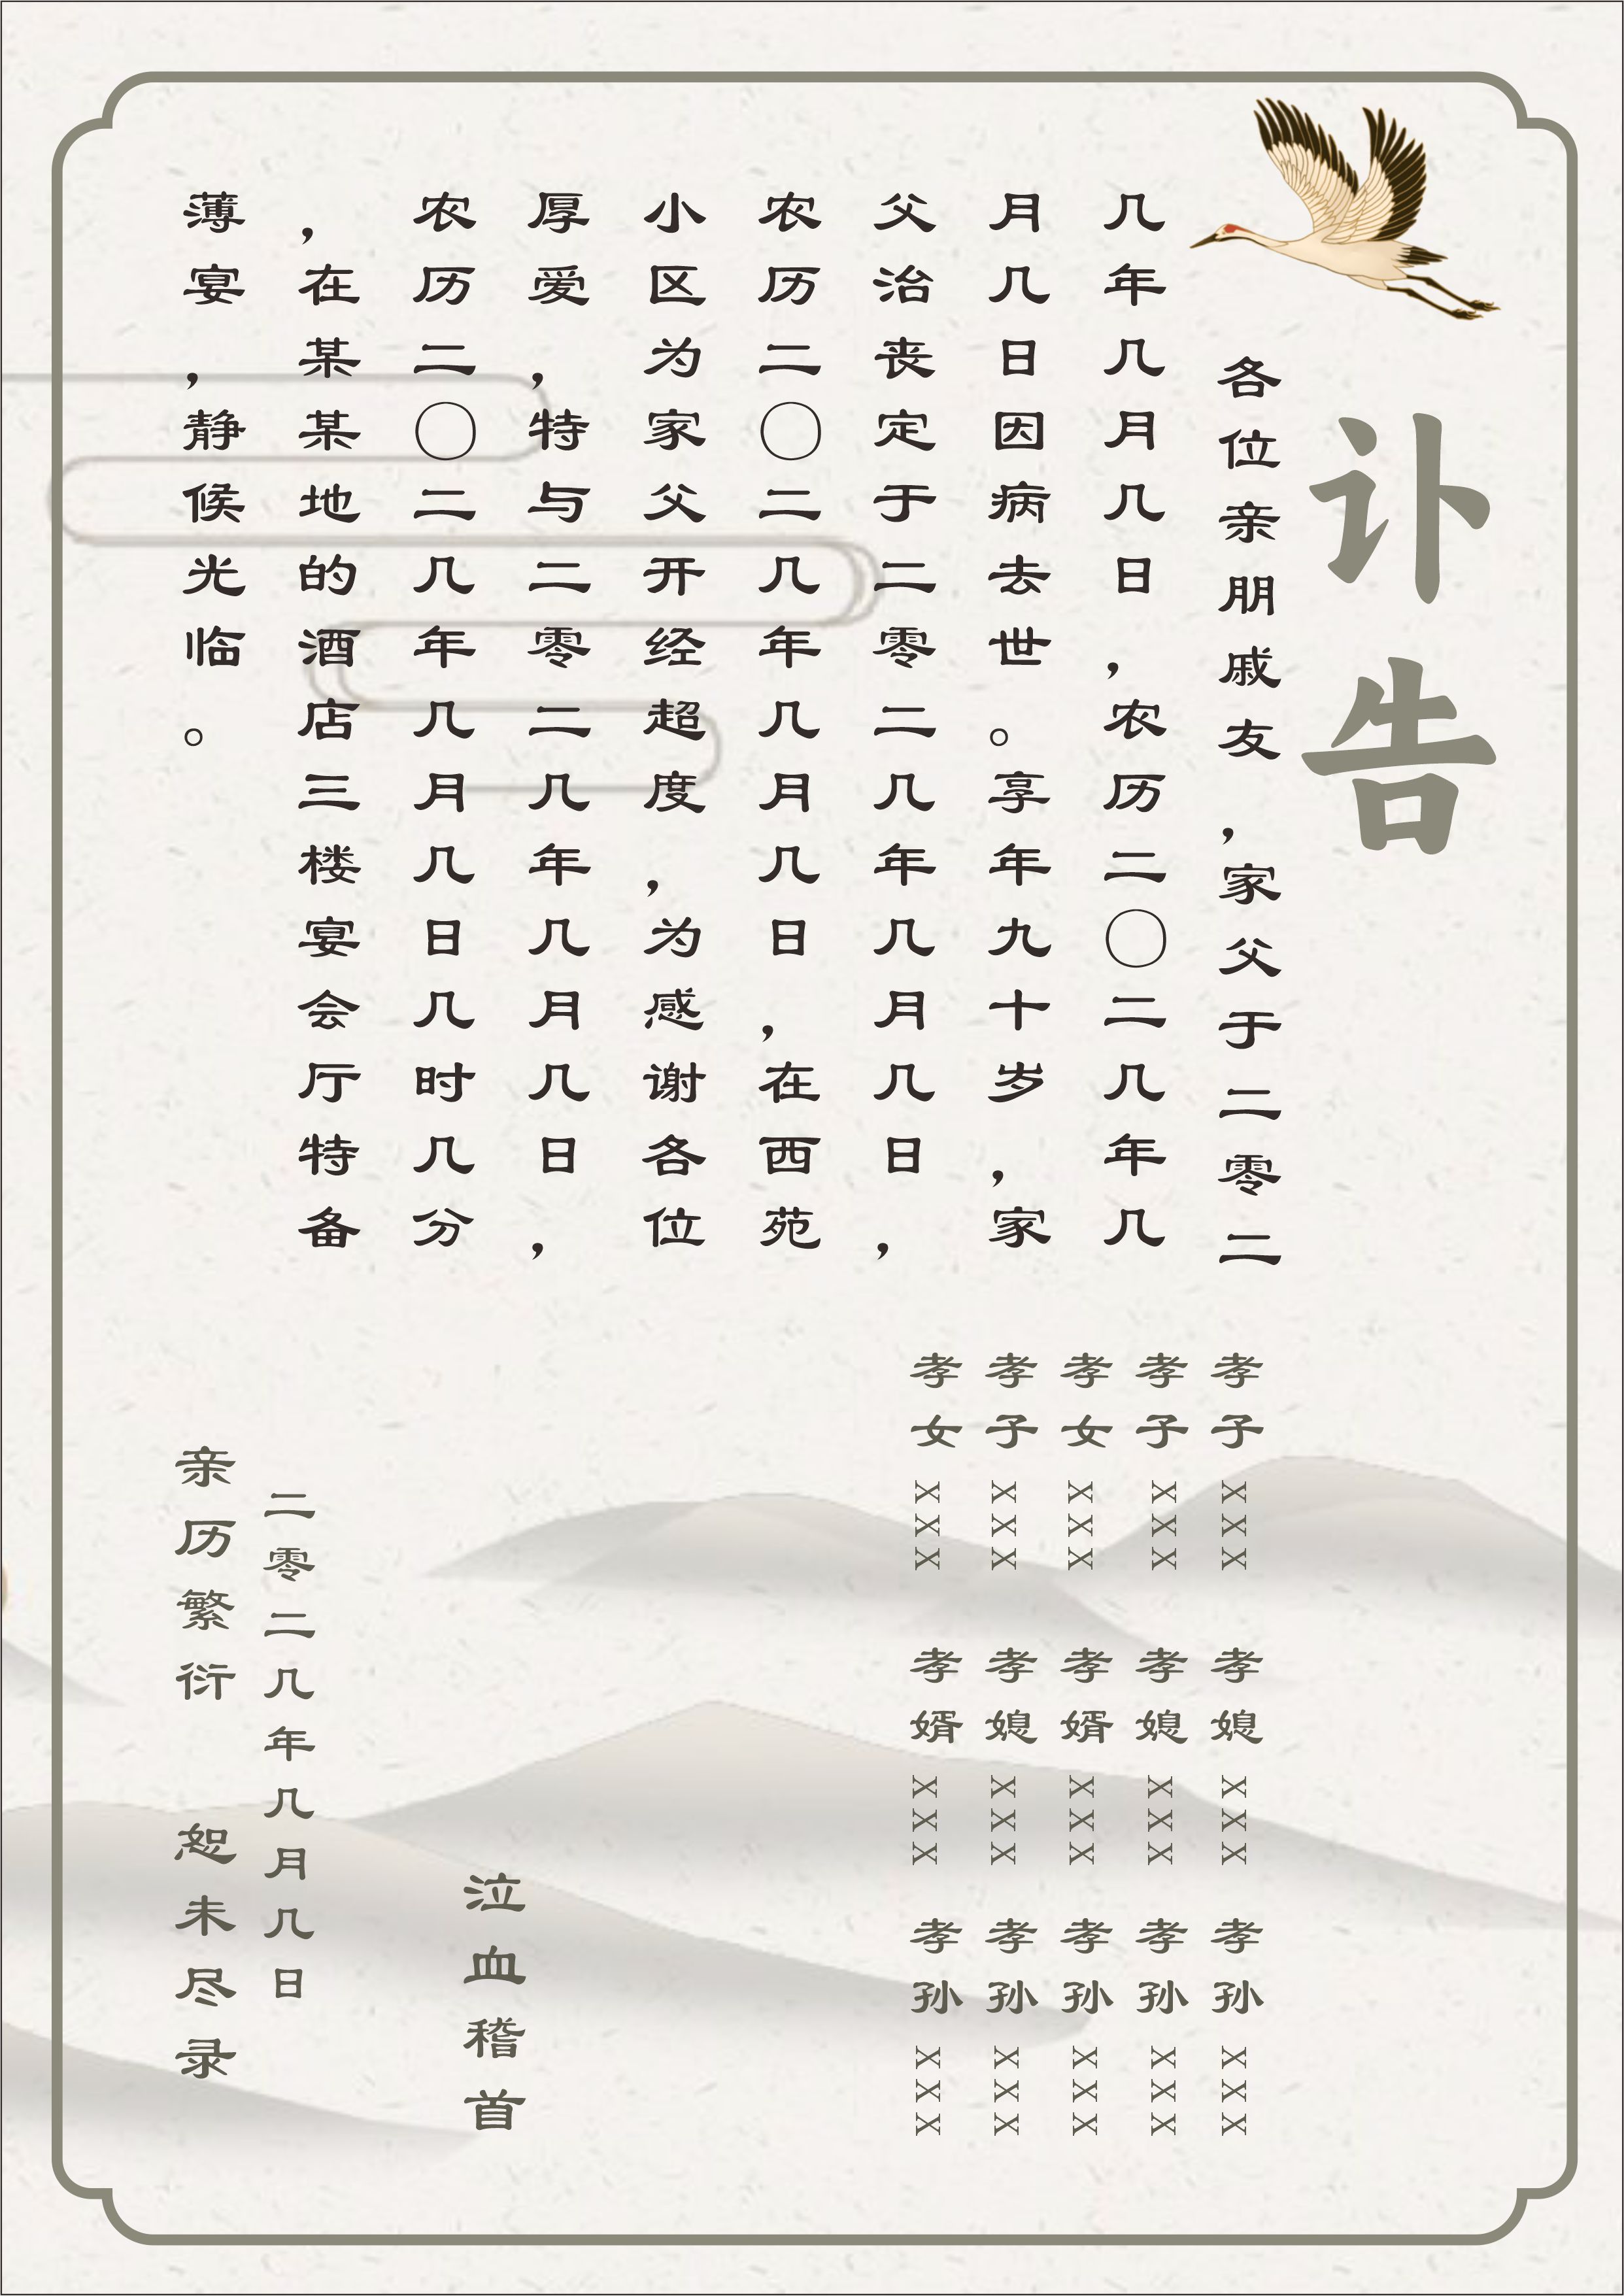 讣告
各位亲朋戚友，家父于二零二
几年几月几日，农历二〇二几年几
月几日因病去世。享年九十岁，家
父治丧定于二零二几年几月几日，
农历二〇二几年几月几日，在西苑
小区为家父开经超度，为感谢各位
厚爱，特与二零二几年几月几日，
农历二〇二几年几月几日几时几分
，在某某地的酒店三楼宴会厅特备
薄宴，静候光临。
孝子XXX 孝媳XXX 孝孙XXX
孝子XXX 孝媳XXX 孝孙XXX
孝女XXX 孝婿XXX 孝孙XXX
孝子XXX 孝媳XXX 孝孙XXX
孝女XXX 孝婿XXX 孝孙XXX
泣血稽首
二零二几年几月几日
亲历繁衍 恕未尽录